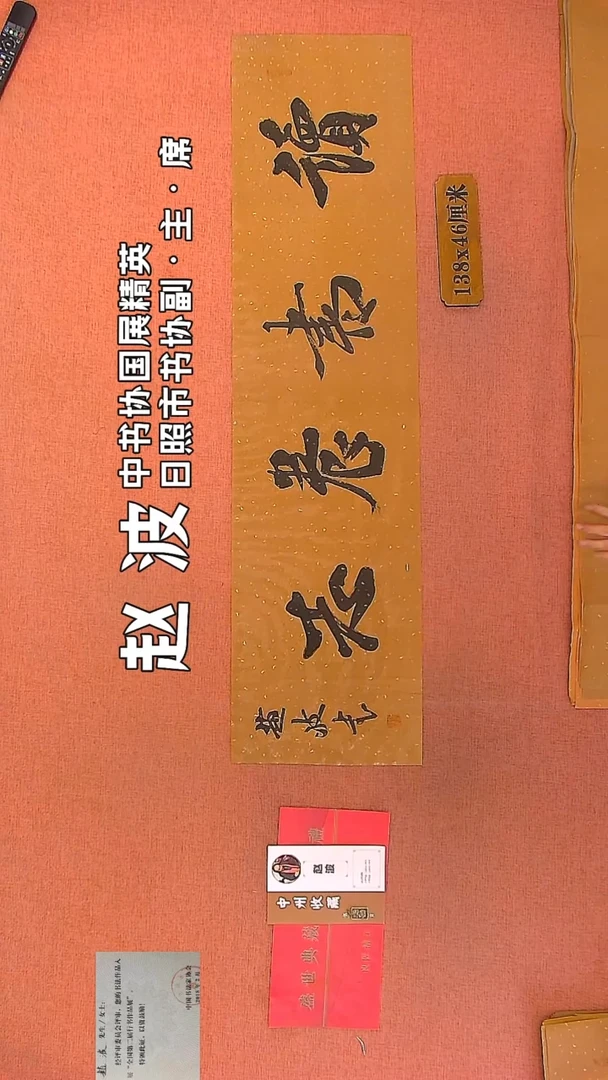 赵波
中书协国展精英
日照市书协副·主·席
讀書
138x46厘米
赵波
中州收藏
盛世典藏
先生/女士：
经评审委员会评审，您的书法作品入
展“全国第二届行书作品展”，
特颁此证，以资鼓励！
中国书法家协会